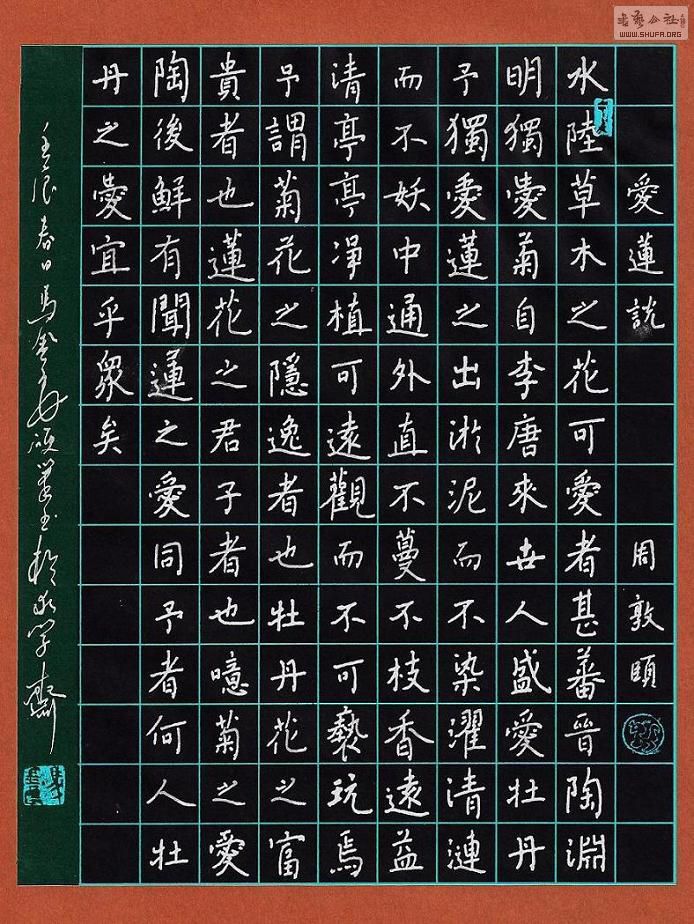 書藝公社
WWW.SHUFA.ORG
愛蓮說 周敦頤
水陸草木之花可愛者甚蕃晉陶淵
明獨愛菊自李唐來世人盛愛牡丹
予獨愛蓮之出淤泥而不染濯清漣
而不妖中通外直不蔓不枝香遠益
清亭亭凈植可遠觀而不可褻玩焉
予謂菊花之隱逸者也牡丹花之富
貴者也蓮花之君子者也噫菊之愛
陶後鮮有聞蓮之愛同予者何人牡
丹之愛宜乎眾矣
壬辰春日馬